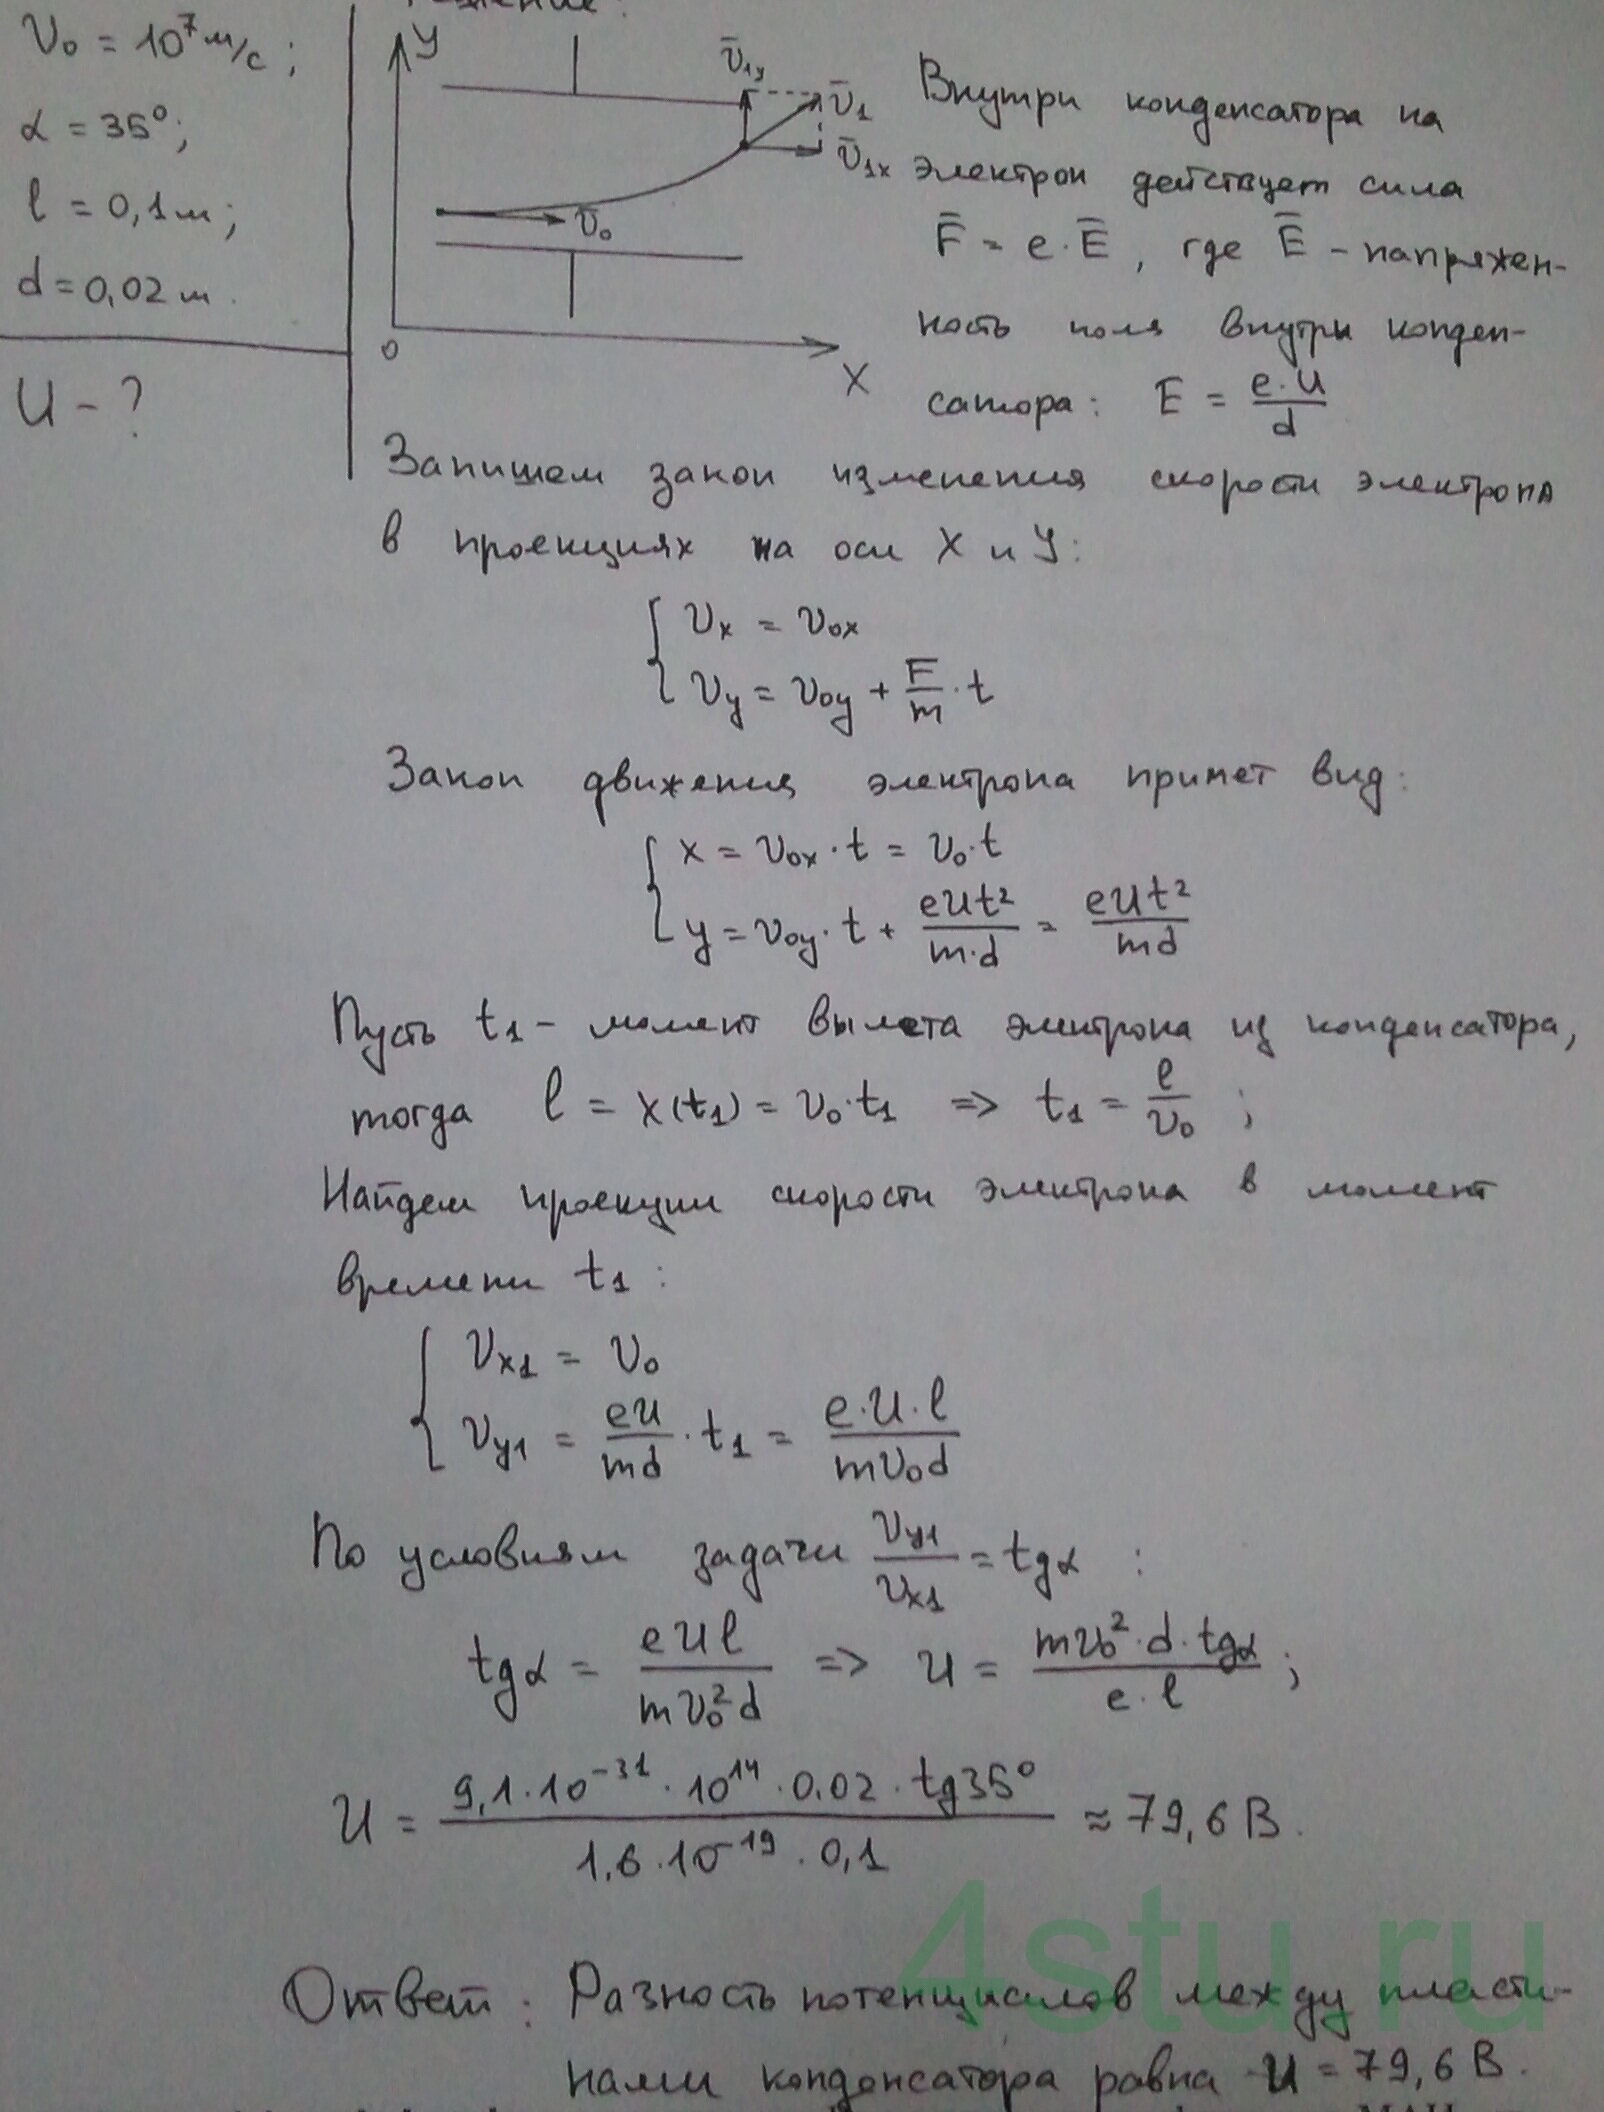 Решение:
υ₀ = 10⁷ м/с;
α = 35°;
l = 0,1 м;
d = 0,02 м.
U - ?
y
υ̅₁y
υ̅₁
υ̅₁x
υ̅₀
0
X
Внутри конденсатора на
электрон действует сила
F̅ = e·E̅, где E̅ - напряжен-
ность поля внутри конден-
сатора: E = e·U/d
Запишем закон изменения скорости электрона
в проекциях на оси X и Y:
υx = υ₀x
υy = υ₀y + F/m · t
Закон движения электрона примет вид:
x = υ₀x · t = υ₀·t
y = υ₀y · t + eUt²/m·d = eUt²/md
Пусть t₁ - момент вылета электрона из конденсатора,
тогда l = x(t₁) = υ₀·t₁ => t₁ = l/υ₀ ;
Найдем проекции скорости электрона в момент
времени t₁:
υx₁ = υ₀
υy₁ = eU/md · t₁ = e·U·l/mυ₀d
По условиям задачи υy₁/υx₁ = tgα :
tgα = eUl/mυ₀²d => U = mυ₀²·d·tgα/e·l ;
U = 9,1·10⁻³¹·10¹⁴·0.02·tg35°/1,6·10⁻¹⁹·0,1 ≈ 79,6 В.
4stu.ru
Ответ: Разность потенциалов между пласти-
нами конденсатора равна U = 79,6 В.